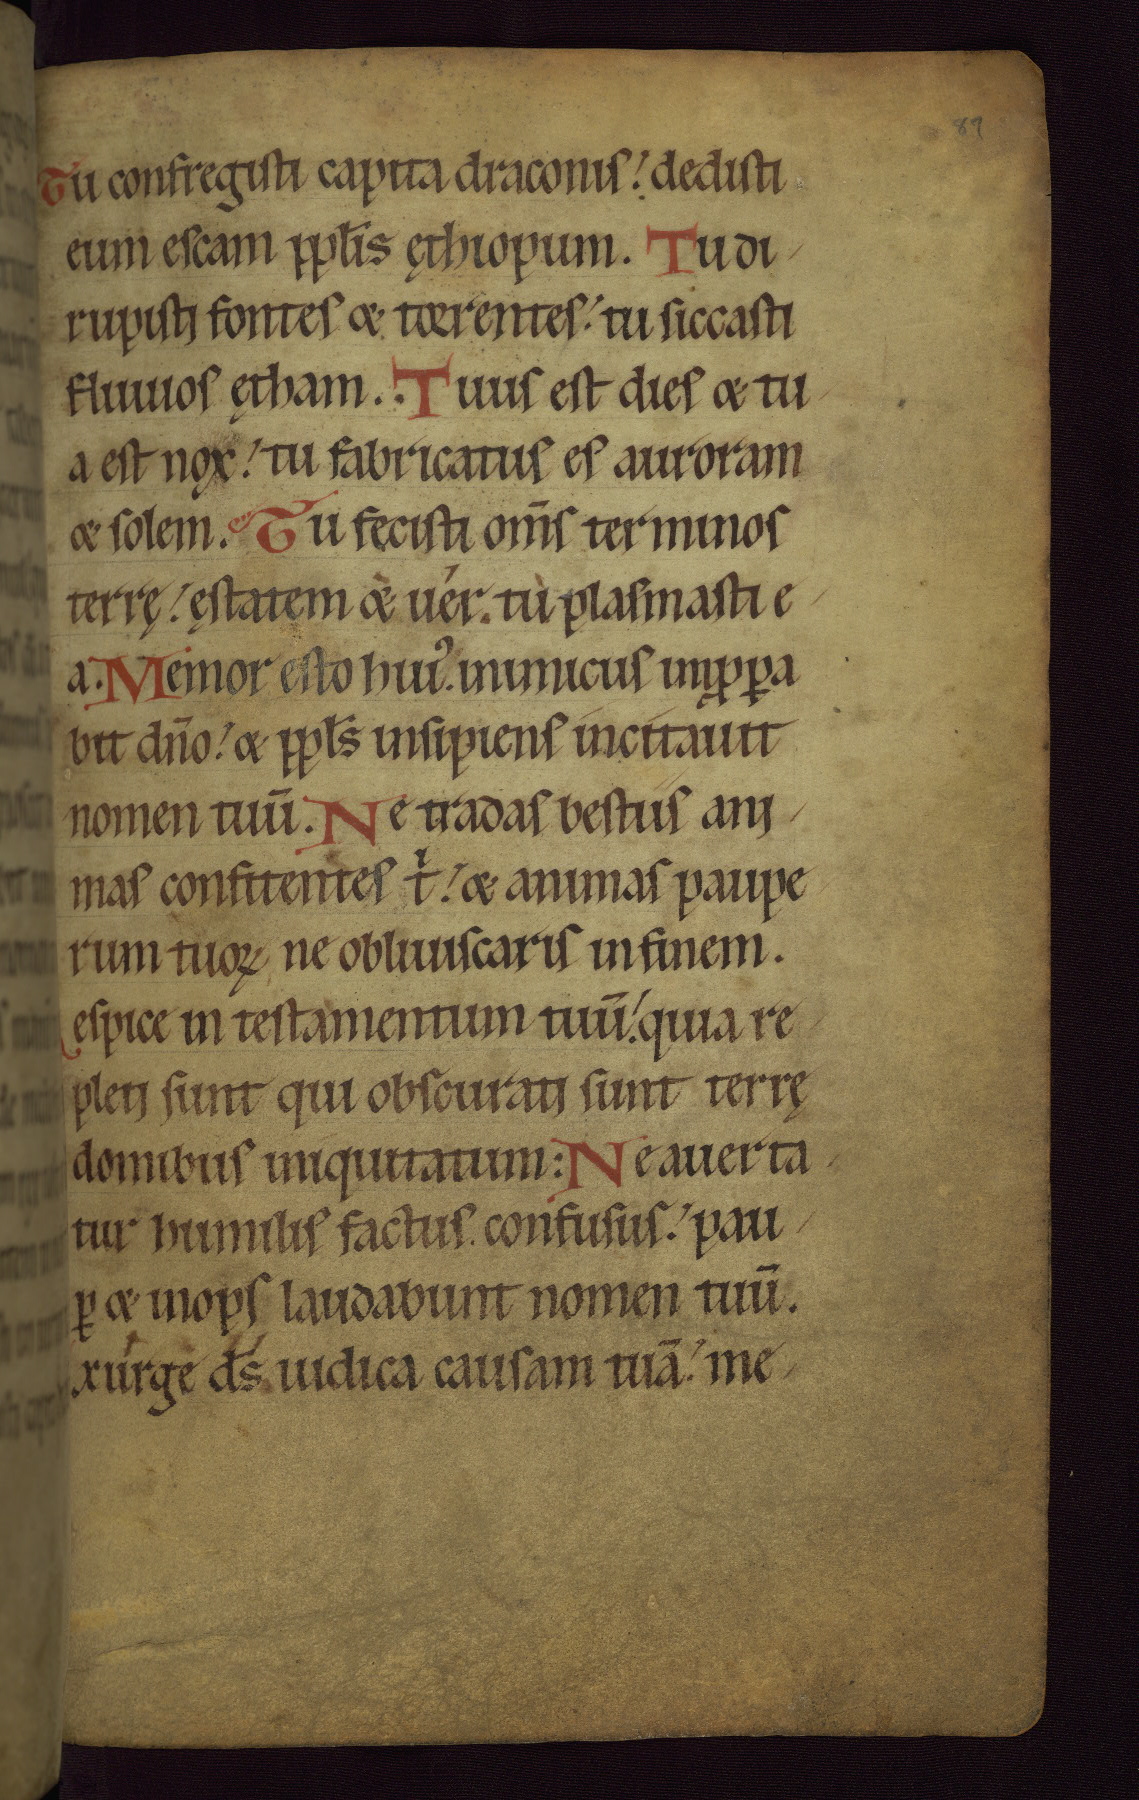 87
Tu confregisti capita draconis! dedisti
eum escam ppl̄is ęthiopum. Tu di
rupisti fontes & torrentes! tu siccasti
fluuios ętham. Tuus est dies & tu
a est nox! tu fabricatus es auroram
& solem. Tu fecisti om̄s terminos
terrę! ęstatem & uer. tu plasmasti e
a. Memor esto hui᾽. inimicus imꝓꝑa
bit dn̄o! & ppl̄s insipiens incitauit
nomen tuū. Ne tradas bestiis ani
mas confitentes t̄! & animas paupe
rum tuoꝝ ne obliuiscaris in finem.
espice in testamentum tuū! quia re
pleti sunt qui obscurati sunt terrę
domibus iniquitatum: Ne auerta
tur humilis factus confusus! pau
ꝑ & inops laudabunt nomen tuū.
xurge ds̄ iudica causam tuā! me